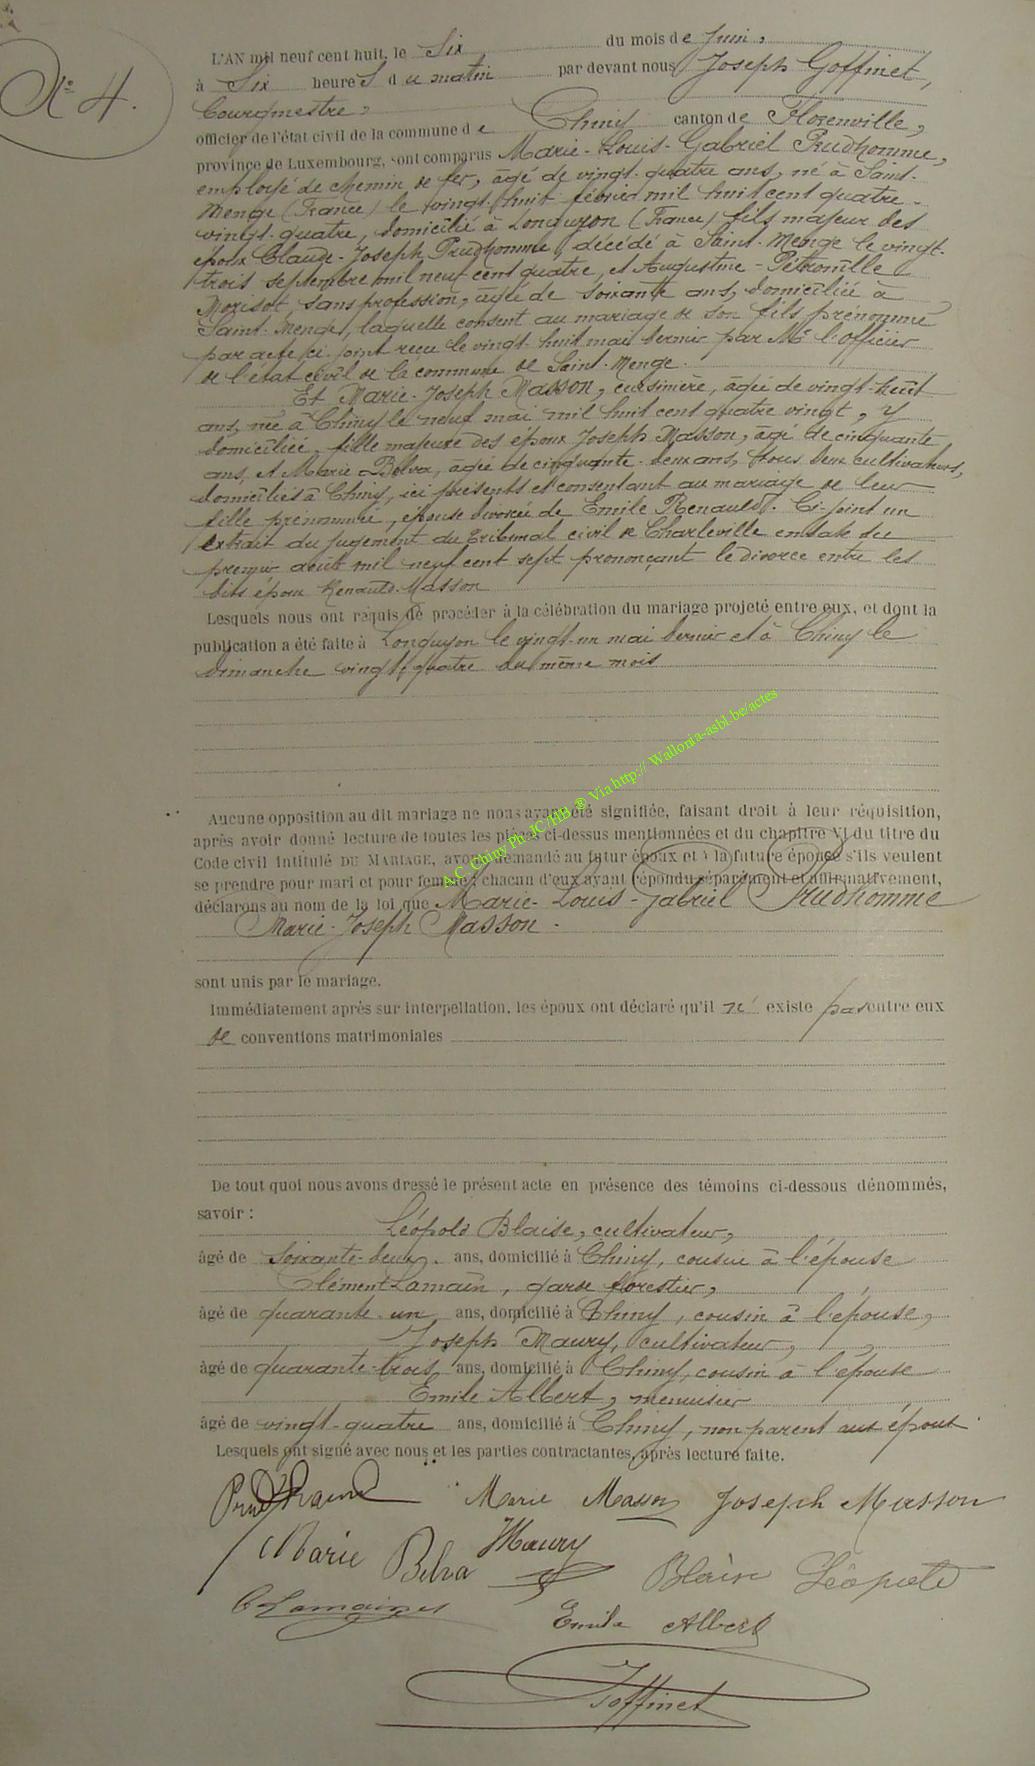 N° 4.
L'AN mil neuf cent huit, le Six du mois de Juin,
à Six heures du matin par devant nous Joseph Goffinet,
Bourgmestre,
officier de l'état civil de la commune de Chiny canton de Florenville,
province de Luxembourg, sont comparus Marie-Louis-Gabriel Prudhomme,
employé de chemin de fer, âgé de vingt-quatre ans, né à Saint-
Menge (France) le vingt-huit février mil huit cent quatre-
vingt-quatre, domicilié à Longuyon (France) fils majeur des
époux Claude-Joseph Prudhomme, décédé à Saint-Menge le vingt-
trois septembre mil neuf cent quatre, et Augustine-Pétronille
Morisot, sans profession, âgée de soixante ans, domiciliée à
Saint-Menge, laquelle consent au mariage de son fils prénommé
par acte ci-joint reçu le vingt-huit mai dernier par Mr l'officier
de l'état civil de la commune de Saint-Menge.
Et Marie-Joseph Masson, cuisinière, âgée de vingt-huit
ans, née à Chiny le neuf mai mil huit cent quatre vingt, y
domiciliée, fille majeure des époux Joseph Masson, âgé de cinquante
ans, et Marie Belva, âgée de cinquante-deux ans, tous deux cultivateurs,
domiciliés à Chiny, ici présents et consentant au mariage de leur
fille prénommée, épouse divorcée de Emile Renauld. Ci-joint un
extrait du jugement du tribunal civil de Charleville en date du
premier août mil neuf cent sept prononçant le divorce entre les
dits époux Renauld-Masson
Lesquels nous ont requis de procéder à la célébration du mariage projeté entre eux, et dont la
publication a été faite à Longuyon le vingt-un mai dernier et à Chiny le
dimanche vingt-quatre du même mois
A.C. Chiny Ph. JC/HB ® Via http:// Wallonia-asbl.be/actes
Aucune opposition au dit mariage ne nous ayant été signifiée, faisant droit à leur réquisition,
après avoir donné lecture de toutes les pièces ci-dessus mentionnées et du chapitre VI du titre du
Code civil intitulé DU MARIAGE, avons demandé au futur époux et à la future épouse s'ils veulent
se prendre pour mari et pour femme ; chacun d'eux ayant répondu séparément et affirmativement,
déclarons au nom de la loi que Marie-Louis-Gabriel Prudhomme
Marie-Joseph Masson.
sont unis par le mariage.
Immédiatement après sur interpellation, les époux ont déclaré qu'il n' existe pas entre eux
de conventions matrimoniales
De tout quoi nous avons dressé le présent acte en présence des témoins ci-dessous dénommés,
savoir :
Léopold Blaise, cultivateur,
âgé de soixante-deux ans, domicilié à Chiny, cousin à l'épouse
Clément Lamain, garde forestier,
âgé de quarante-un ans, domicilié à Chiny, cousin à l'épouse,
Joseph Maury, cultivateur,
âgé de quarante-trois ans, domicilié à Chiny, cousin à l'épouse
Emile Albert, menuisier
âgé de vingt-quatre ans, domicilié à Chiny, non parent aux époux.
Lesquels ont signé avec nous et les parties contractantes, après lecture faite.
Marie Masson Joseph Masson
Marie Belva Maury Blaise Léopold
Emile Albert
Goffinet